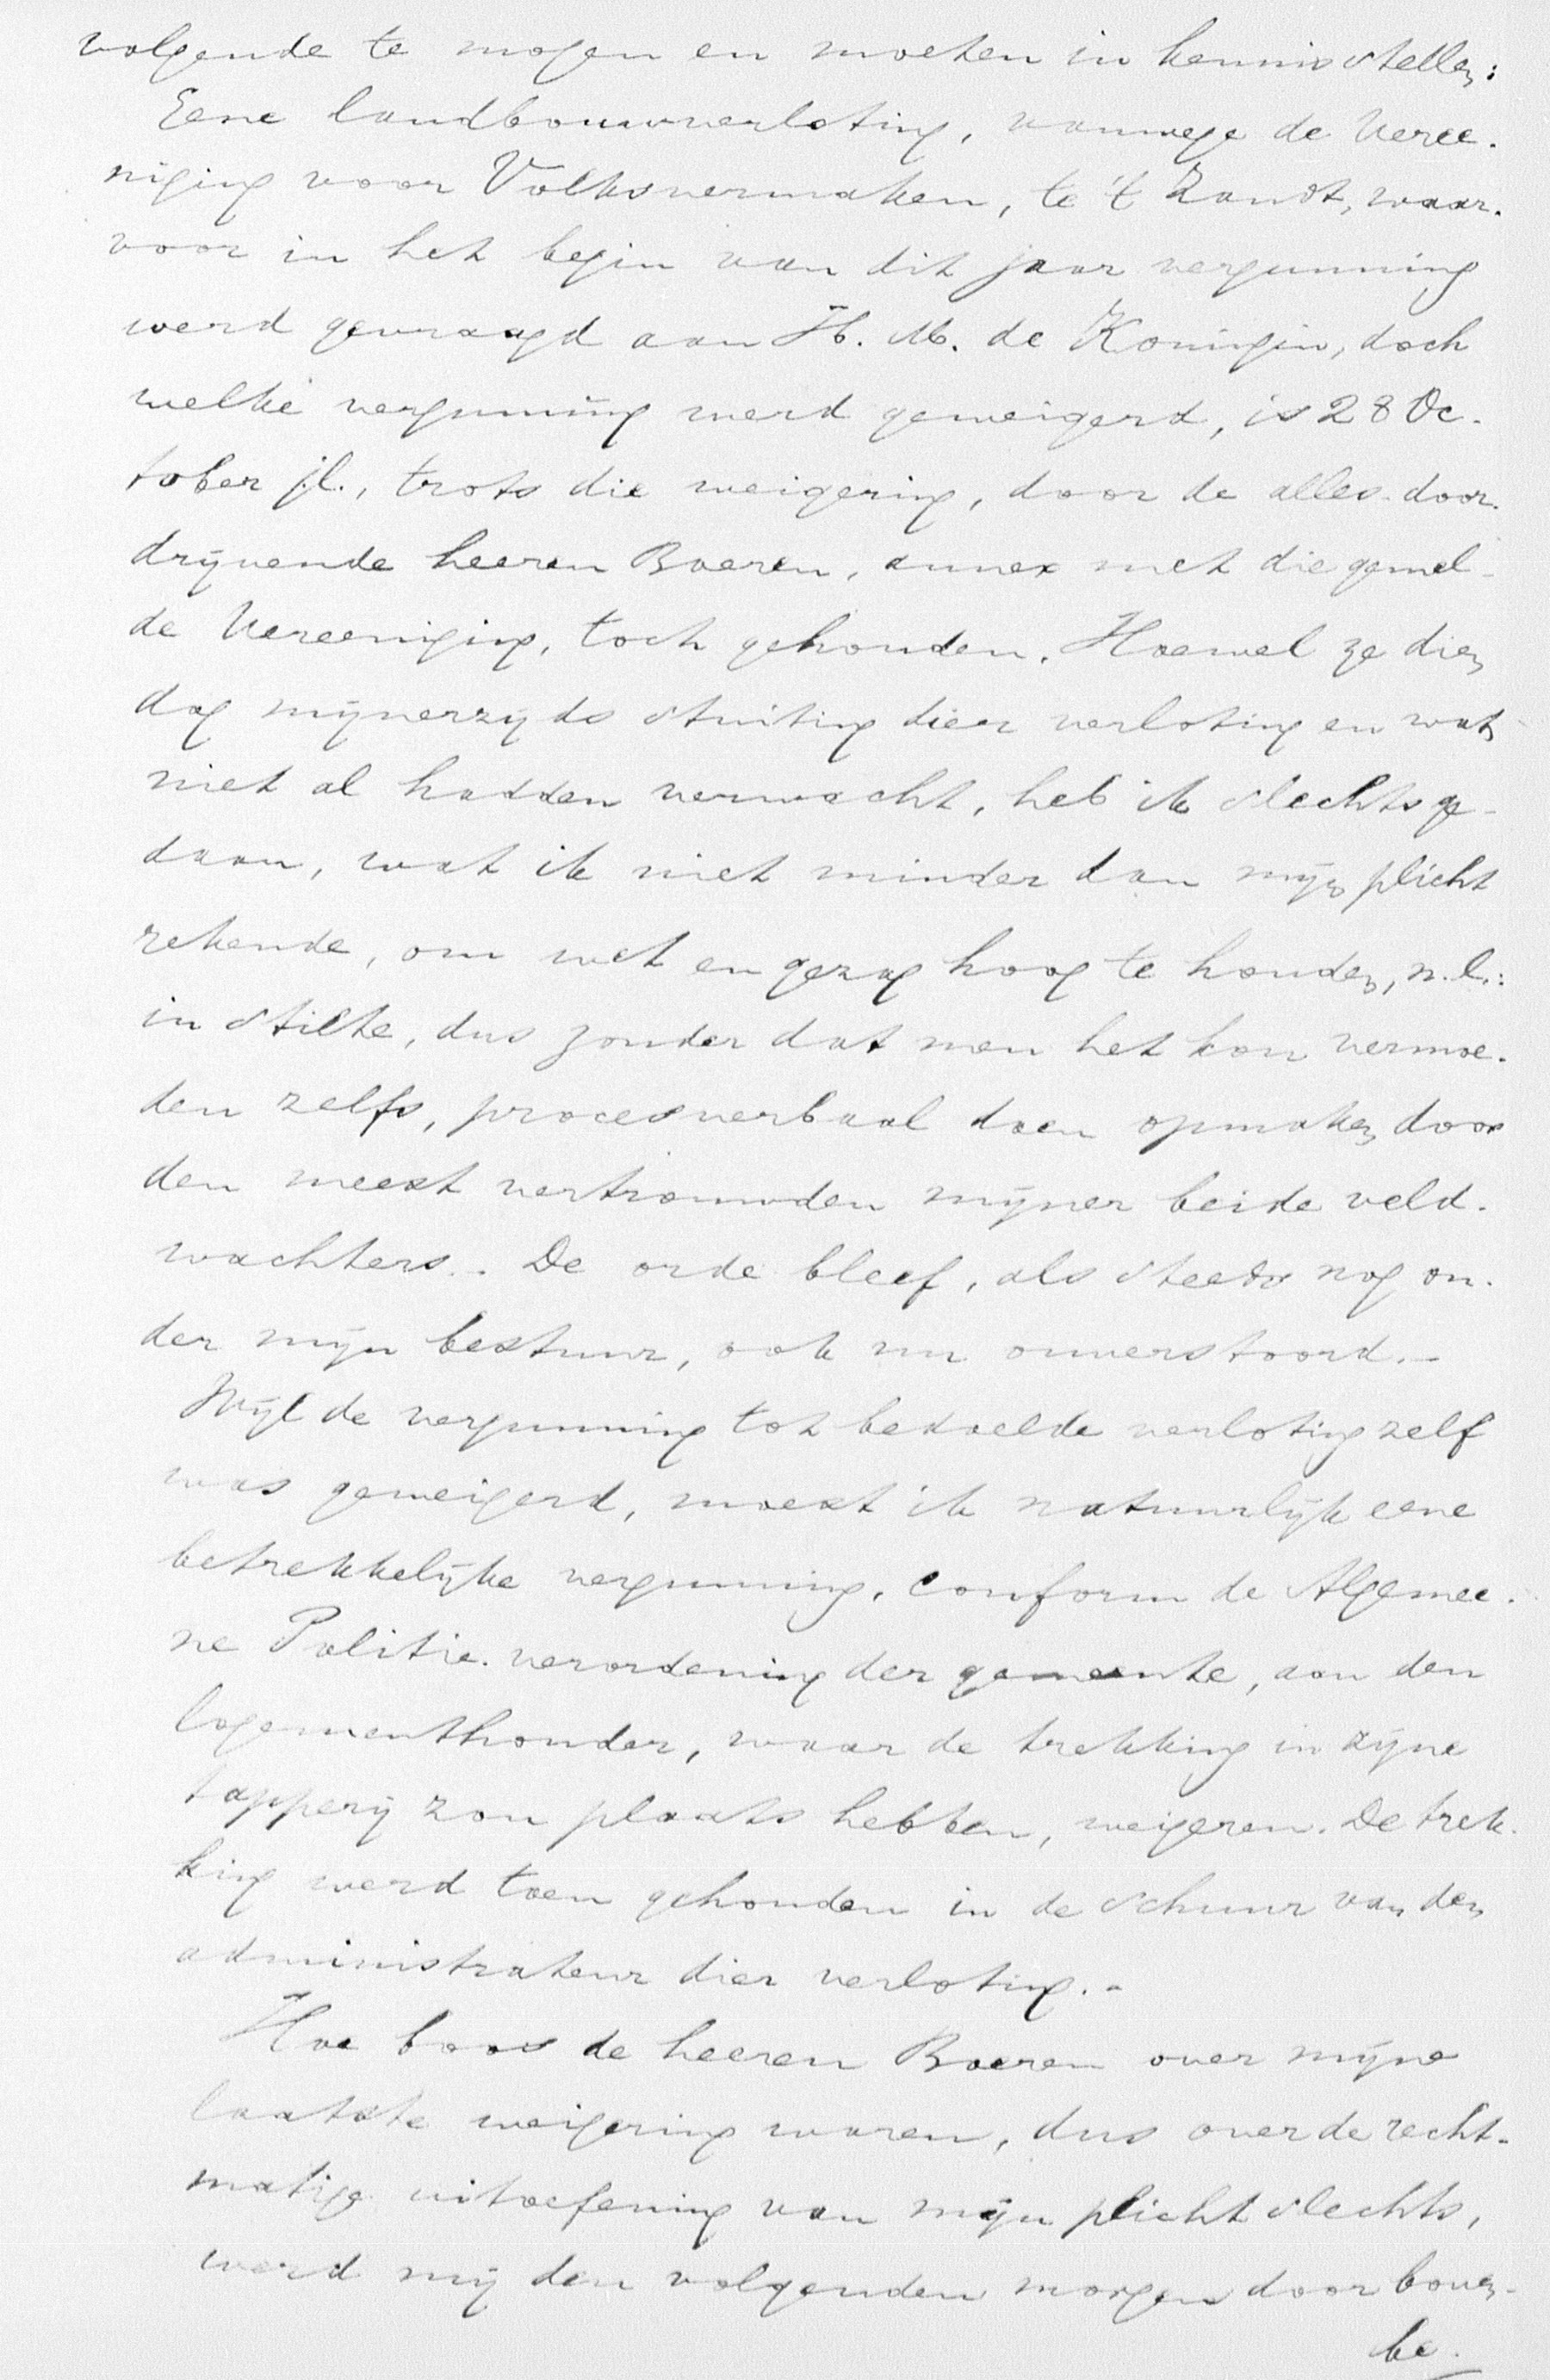 volgende te mogen en moeten in kennis stellen:
Eene landbouwverloting, vanwege de Veree-
niging voor Volksvermaken, te 't Zandt, waar-
voor in het begin van dit jaar vergunning
werd gevraagd aan H. M. de Koningin, doch
welke vergunning werd geweigerd, is 28 Oc-
tober jl., trots die weigering, door de alles-door-
drijvende heeren Boeren, annex met die gemel-
de Vereeniging, toch gehouden. Hoewel ze dien
dag mijnerzijds stuiting dier verloting en wat
niet al hadden verwacht, heb ik slechts ge-
daan, wat ik niet minder dan mijn plicht
rekende, om wet en gezag hoog te houden, n.l.:
in stilte, dus zonder dat men het kon vermoe-
den zelfs, procesverbaal doen opmaken door
den meest vertrouwden mijner beide veld-
wachters. - De orde bleef, als steeds nog on-
der mijn bestuur, ook nu onverstoord. -
Wijl de vergunning tot bedoelde verloting zelf
was geweigerd, moest ik natuurlijk eene
betrekkelijke vergunning, conform de Algemee-
ne Politie-verordening der gemeente, aan den
logementhouder, waar de trekking in zijne
tapperij zou plaats hebben, weigeren. De trek-
king werd toen gehouden in de schuur van den
administrateur dier verloting. -
Hoe boos de heeren Boeren over mijne
laatste weigering waren, dus over de recht-
matige uitoefening van mijn plicht slechts,
werd mij den volgenden morgen door boven-
be-